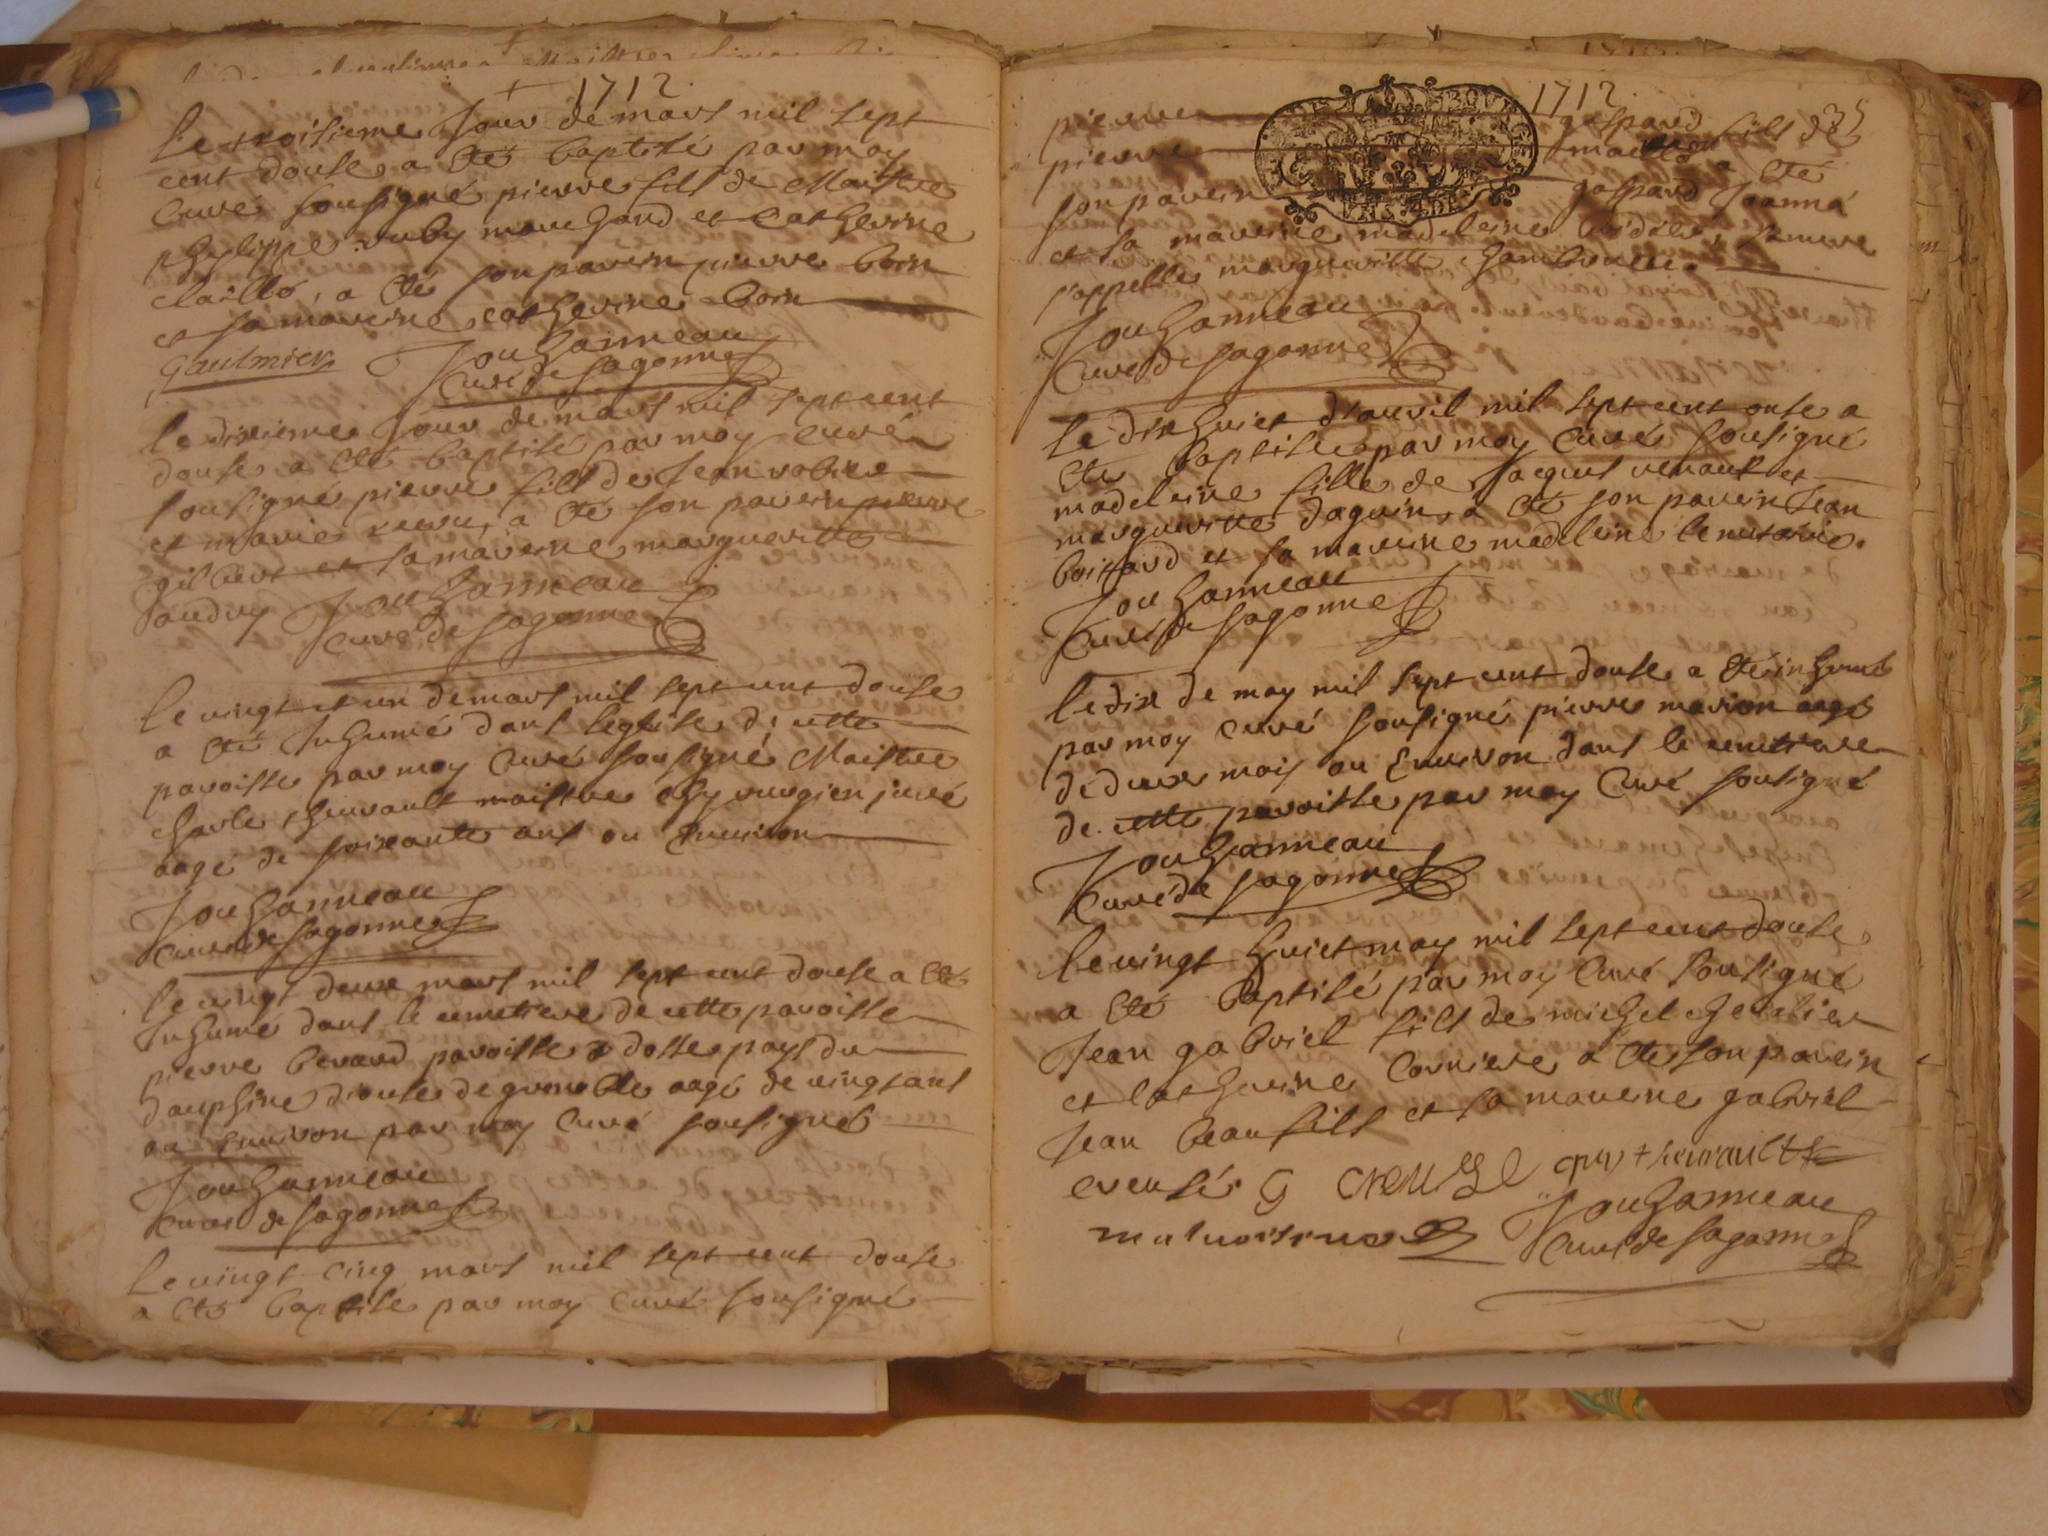 1712
Le troisieme Jour de mars mil sept
cent douse a été baptisé par moy
Curé sousigné pierre fils de Maistre
phylippe auby marchand et Catherine
a été son parein pierre boin
et sa mareine catherine boin
Gaulmier Jouhanneau
Curé de sagonne
le disieme Jour de mars mil sept cent
douse a été baptisé par moy curé
sousigné pierre fils de Jean
et marie a été son parein pierre
gilbert et sa mareine margueritte
audry Jouhanneau
curé de sagonne
le vingt et un de mars mil sept cent douse
a été Inhumé dans leglise de cette
paroisse par moy Curé sousigné Maistre
charle thevrault maistre chyrurgien juré
aagé de soixante ans ou Environ
Jouhanneau
Curé de sagonne
le vingt deux mars mil sept cent douse a été
Inhumé dans le cemetiere de cette paroisse
pierre berard paroisse dosse pays du
dauphiné diouse de grenoble aagé de vingt ans
ou Environ par moy Curé sousigné
Jouhanneau
Curé de sagonne
le vingt cinq mars mil sept cent douse
a été baptise par moy curé sousigné
1712
pierre gaspard 35
pierre fils de
a été
son parein gaspard Joanna
et sa mareine madeleine sa mere
sappelle margueritte
Jouhanneau
Curé de sagonne
le dix huict d'auril mil sept cent onse a
été baptisée par moy Curé sousigné
madeleine fille de Jacques renault et
margueritte daguin a été son parein Jean
boissard et sa mareine madeleine
Jouhanneau
Curé de sagonne
le dix de may mil sept cent douse a été inhumé
par moy curé sousigné pierre marion aagé
de deux mois ou Environ dans le cemetiere
de cette paroisse par moy Curé sousigné
Jouhanneau
Curé de sagonne
le vingt huict may mil sept cent douse
a été baptisé par moy Curé sousigné
Jean gabriel fils de michel chevalier
et Catherine Corniere a été son parein
Jean beaufils et sa mareine gabriel
creusé G creuzé thevrault
Jouhanneau
Curé de sagonne